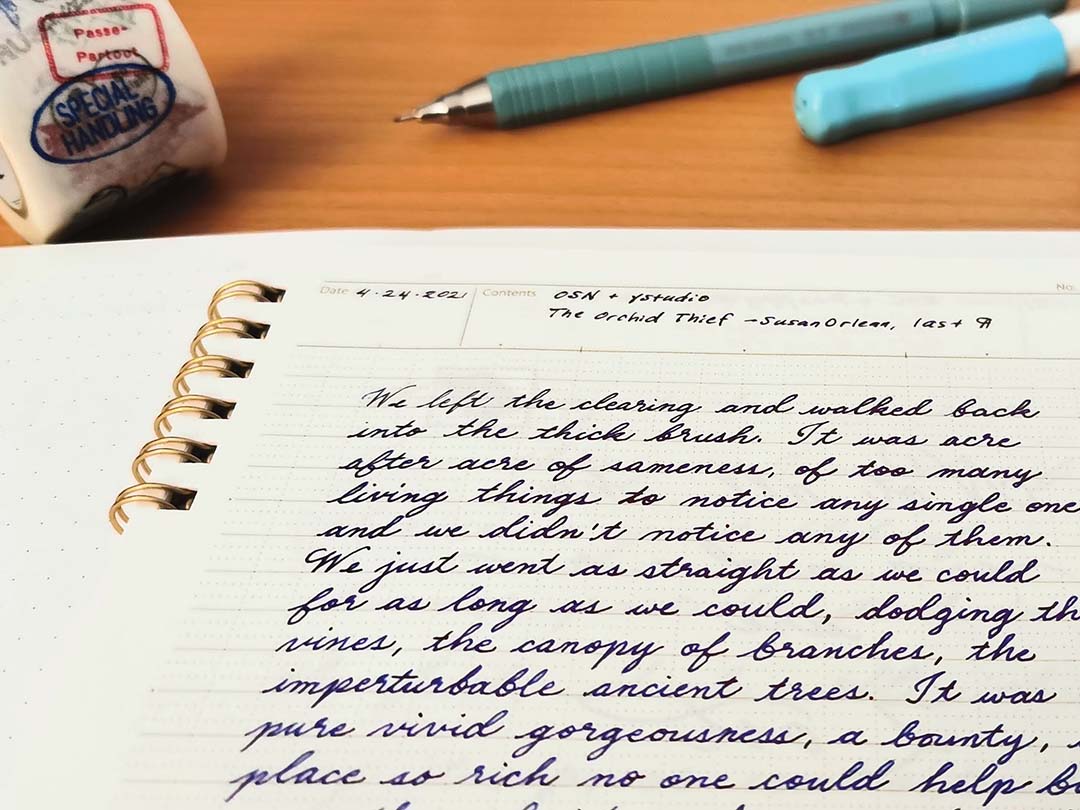 Passe-
Partout
SPECIAL
HANDLING
Date 4·24·2021 Contents OSN + ystudio No.
The Orchid Thief - Susan Orlean, last ¶
We left the clearing and walked back
into the thick brush. It was acre
after acre of sameness, of too many
living things to notice any single one
and we didn't notice any of them.
We just went as straight as we could
for as long as we could, dodging th
vines, the canopy of branches, the
imperturbable ancient trees. It was
pure vivid gorgeousness, a bounty,
place so rich no one could help bu